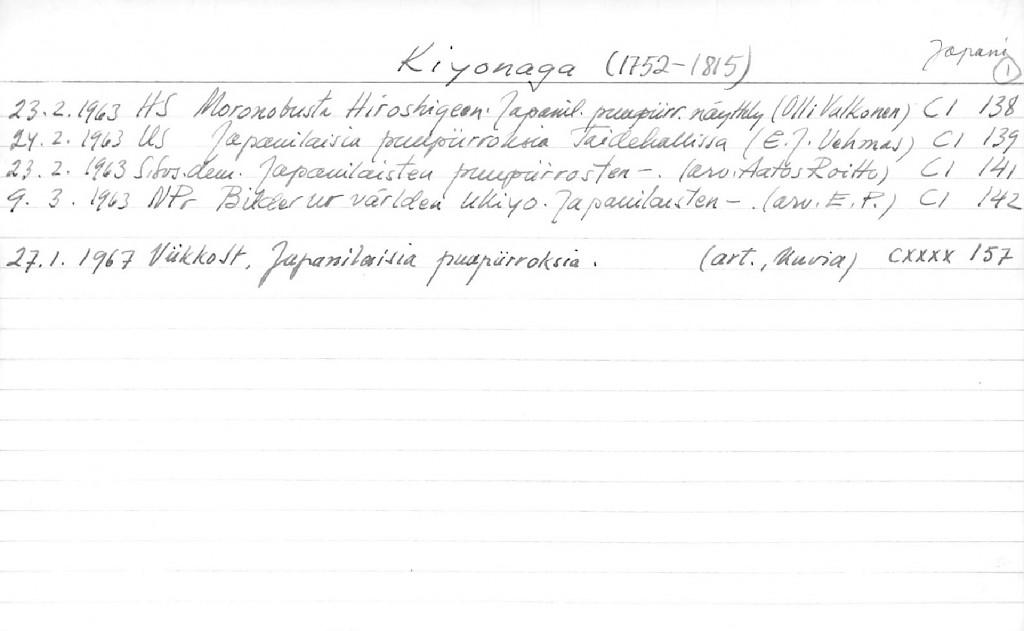 Kiyonaga (1752-1815) Japani 1
23.2.1963 HS Moronobusta Hiroshigeen. Japanil. puupiirr. näyttely (Olli Valkonen) CI 138
24.2.1963 US Japanilaisia puupiirroksia Taidehallissa (E.J. Vehmas) CI 139
23.2.1963 S.Sos.dem. Japanilaisten puupiirrosten -. (arv. Aatos Roitto) CI 141
9.3.1963 NPr Bilder ur världen Ukiyo. Japanilaisten -. (arv. E.P.) CI 142
27.1.1967 Viikkolt, Japanilaisia puupiirroksia. (art., kuvia) CXXXX 157